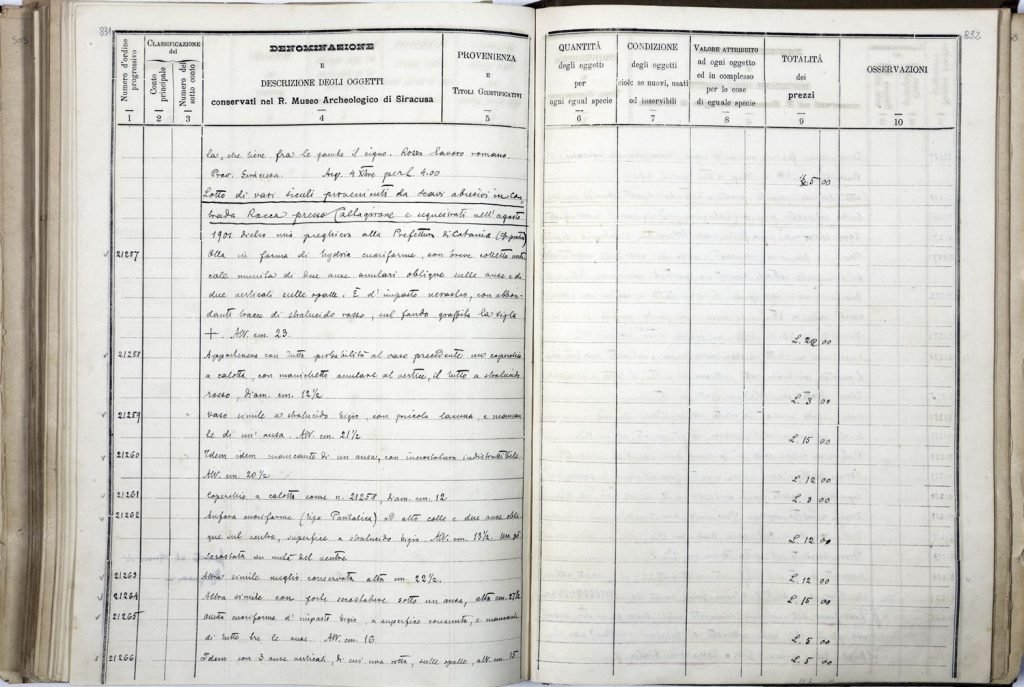 831
Numero d'ordine progressivo
CLASSIFICAZIONE del
Conto principale
Numero del sotto conto
DENOMINAZIONE
E
DESCRIZIONE DEGLI OGGETTI
conservati nel R. Museo Archeologico di Siracusa
PROVENIENZA
E
TITOLI GIUSTIFICATIVI
1 2 3 4 5
la, che tiene fra le gambe il cigno. Roseo lavoro romano.
Prov. Siracusa. Acq. 4 Xbre per L. 4.00
Lotto di vasi siculi provenienti da scavi abusivi in Con
trada Racca presso Caltagirone e sequestrati nell'agosto
1901 dietro mia preghiera alla Prefettura di Catania
21257 Olla in forma di hydria cuoriforme, con breve colletto verti
cale munita di due anse anulari oblique sulle anse e di
due verticali sulle spalle. È d'impasto nerastro, con abbon-
danti tracce di stralucido rosso, sul fondo graffita la sigla
+. Alt. cm. 23.
21258 Apparteneva con tutta probabilità al vaso precedente un coperchio
a calotta, con manichetto anulare al vertice, il tutto a stralucido
rosso, diam. cm. 12 1/2
21259 Vaso simile a stralucido bigio, con piccola lacuna, e mancan
te di un'ansa. Alt. cm. 21 1/2
21260 Idem idem mancante di un ansa, con incrostatura
Alt. cm. 20 1/2
21261 Coperchio a calotta come n. 21258, Diam. cm. 12
21262 Anfora cuoriforme (tipo Pantalica) ad alto collo e due anse obli
que sul ventre, superfice a stralucido bigio. Alt. cm. 13 1/2. un po'
scrostata su metà del ventre
21263 Altra simile meglio conservata alta cm. 22 1/2.
21264 Altra simile con forte scrostatura sotto un ansa, alta cm. 27 1/2
21265 cuoriforme d'impasto bigio, a superfice consunta, e mancante
di tutte tre le anse. Alt. cm. 16
21266 Idem con 3 anse verticali, di cui una rotta, sulle spalle, alt. cm. 15
832
QUANTITÀ
degli oggetti
per
ogni egual specie
CONDIZIONE
degli oggetti
cioè: se nuovi, usati
od inservibili
VALORE ATTRIBUITO
ad ogni oggetto
ed in complesso
per le cose
di eguale specie
TOTALITÀ
dei
prezzi
OSSERVAZIONI
6 7 8 9 10
5 00
L. 20 00
L. 3 00
L. 15 00
L. 12 00
L. 3 00
L. 12 00
L. 12 00
L. 15 00
L. 5 00
L. 5 00